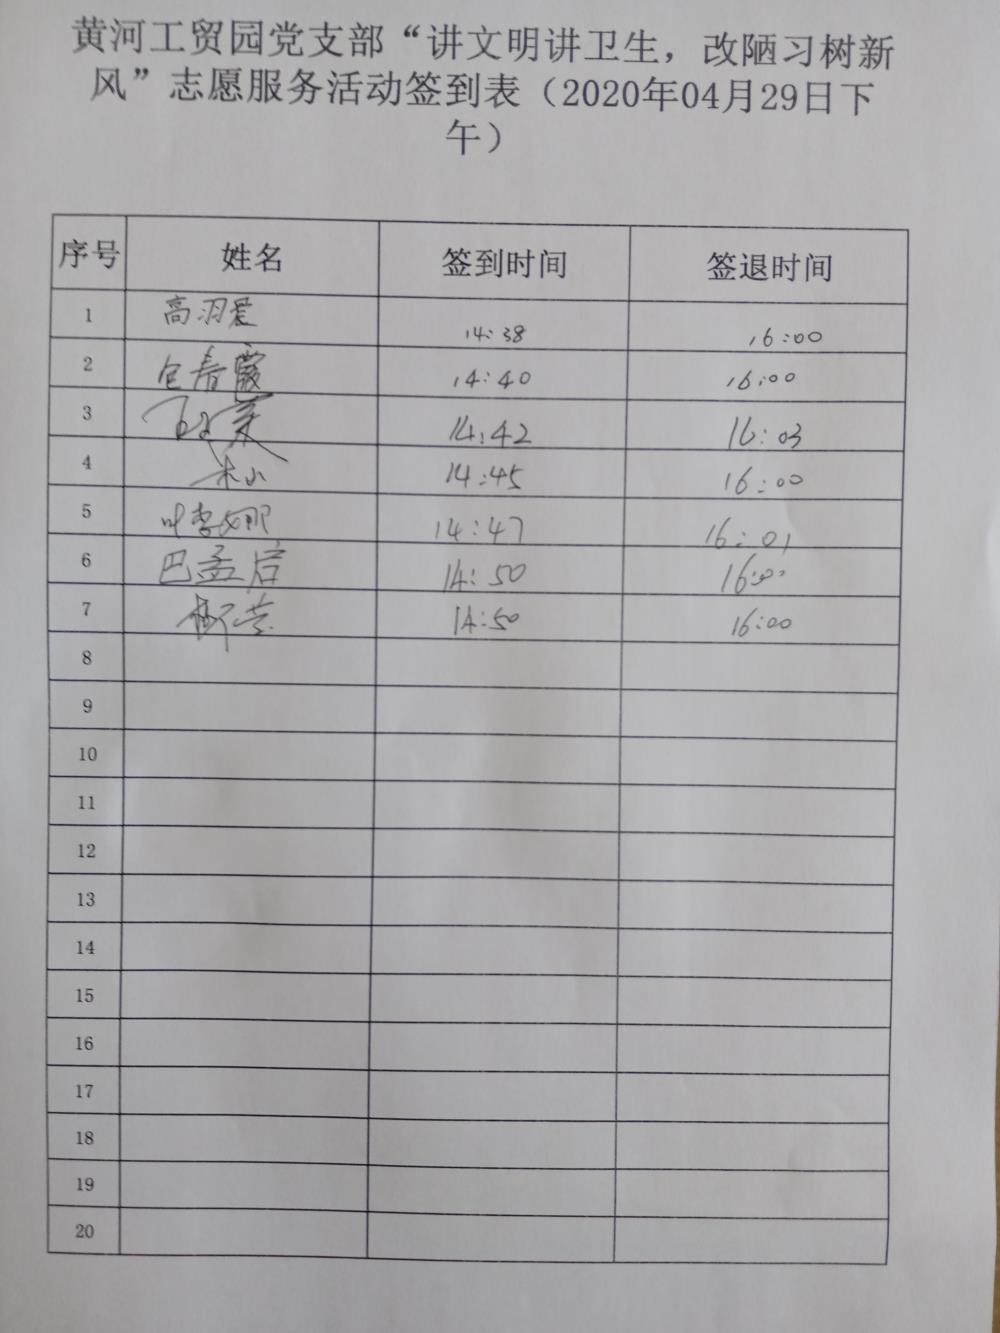 黄河工贸园党支部“讲文明讲卫生，改陋习树新
风”志愿服务活动签到表（2020年04月29日下
午）
序号 姓名 签到时间 签退时间
1 高羽爱 14:38 16:00
2 包春霞 14:40 16:00
3 14:42 16:03
4 14:45 16:00
5 叶李娜 14:47 16:01
6 巴孟后 14:50 16:00
7 14:50 16:00
8
9
10
11
12
13
14
15
16
17
18
19
20